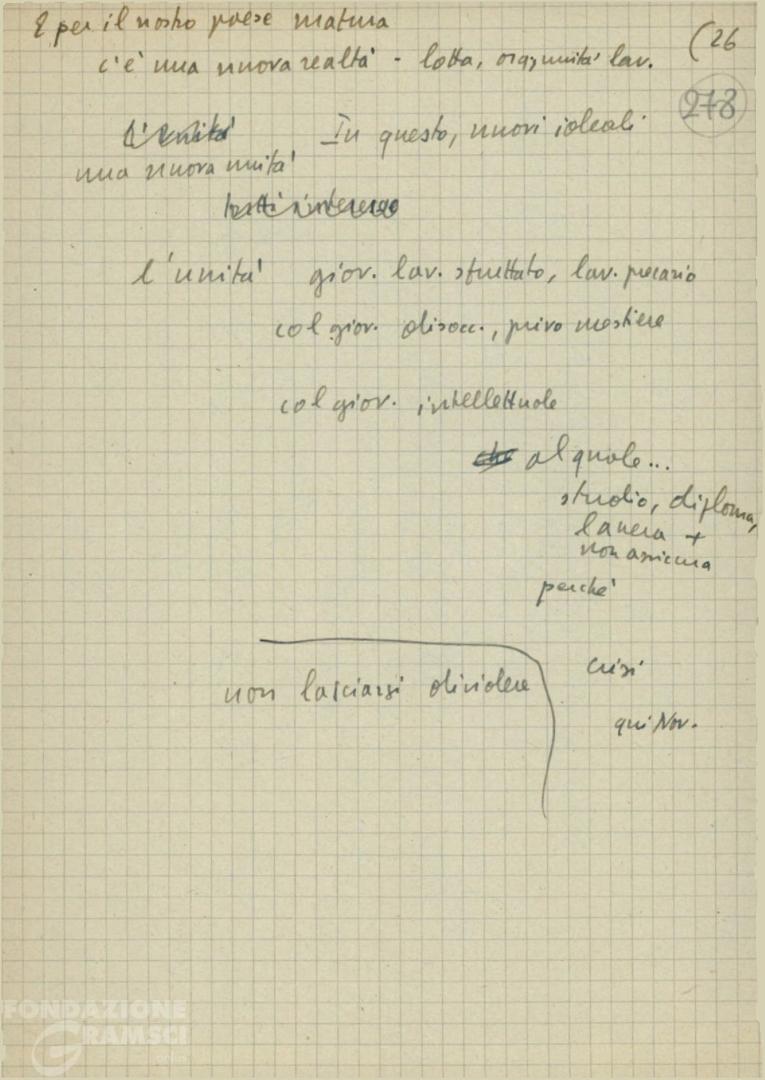 E per il nostro paese matura
c'è una nuova realtà - lotta, org, unità lav.
(26
278
l'unità
In questo, nuovi ideali
una nuova unità
l'unità giov. lav. sfruttato, lav. precario
col giov. disocc., privo mestiere
col giov. intellettuale
che al quale...
studio, diploma,
laurea +
non assicura
perché
non lasciarsi dividere
crisi
qui Nov.
FONDAZIONE
GRAMSCI